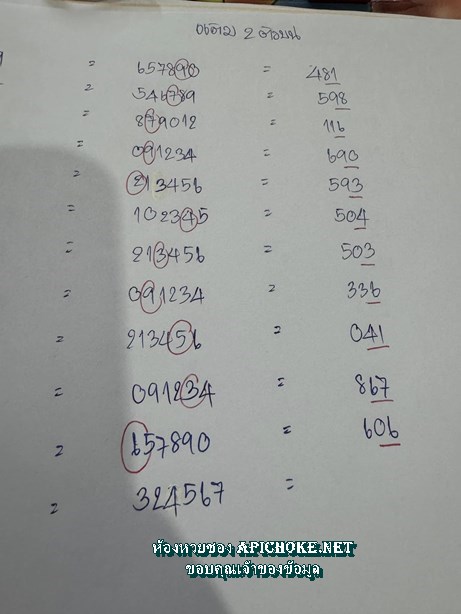 2 ตัวบน
= 657890 = 481
= 546789 = 598
= 879012 = 116
= 091234 = 690
= 213456 = 593
= 102345 = 504
= 213456 = 503
= 091234 = 336
= 213456 = 041
= 091234 = 867
= 657890 = 606
= 324567 =
ห้องหวยซอง APICHOKE.NET
ขอบคุณเจ้าของข้อมูล